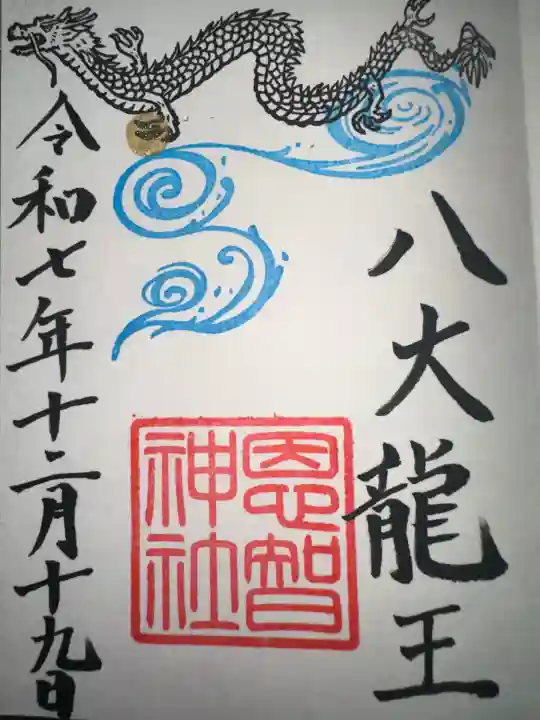 八大龍王
恩智
神社
令和七年十二月十九日